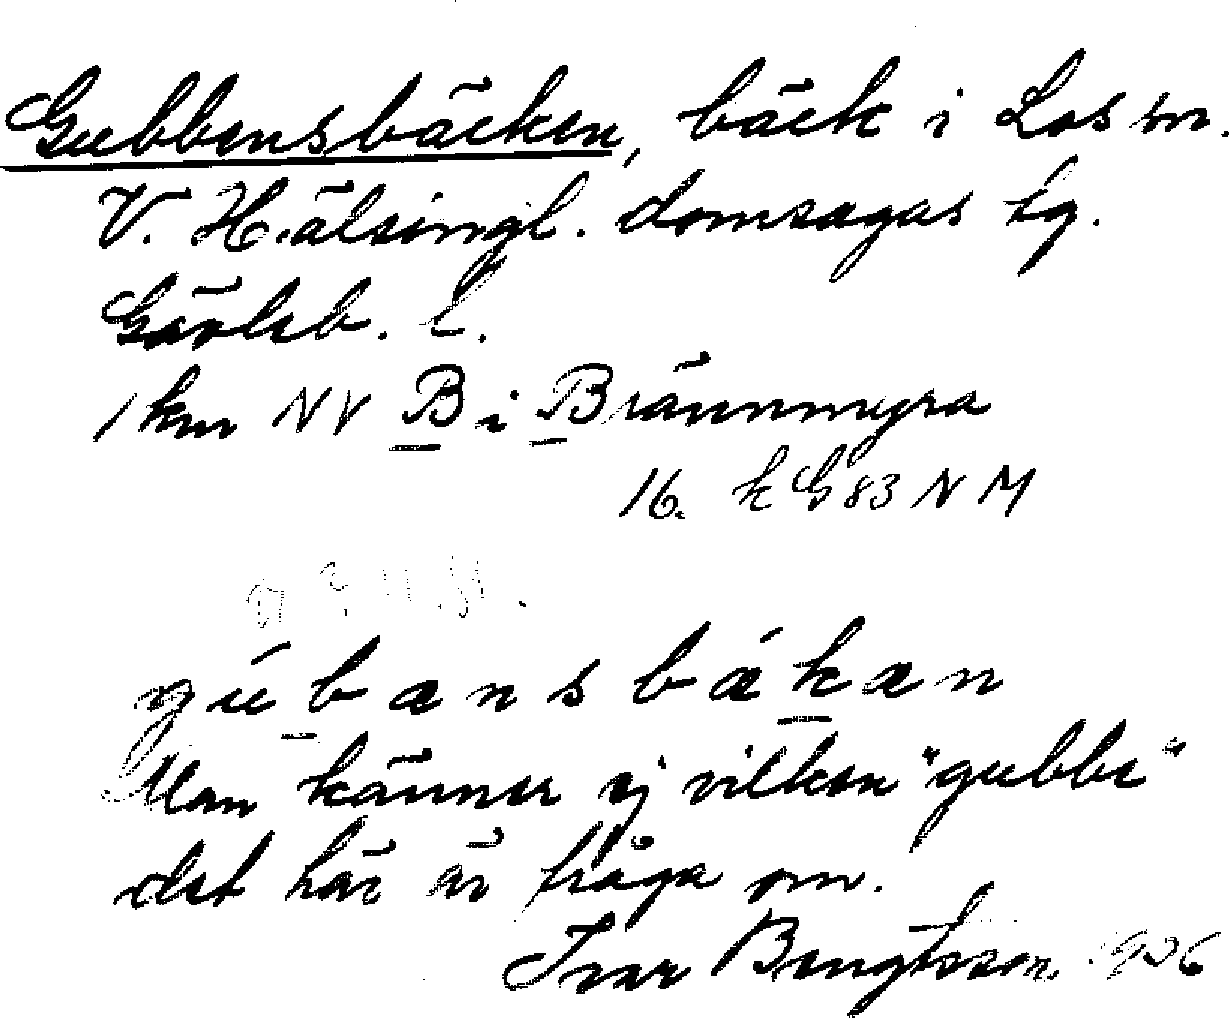 Gubbensbäcken, bäck i Los sn.
V. Hälsingl. domsagas tg.
Gävleb. l.
1 km NV B i Brännmyra
16. k G 83 NM
gúbansbákan
Man känner ej vilken "gubbe"
det här är fråga om.
Ivar Bengtsson 1936